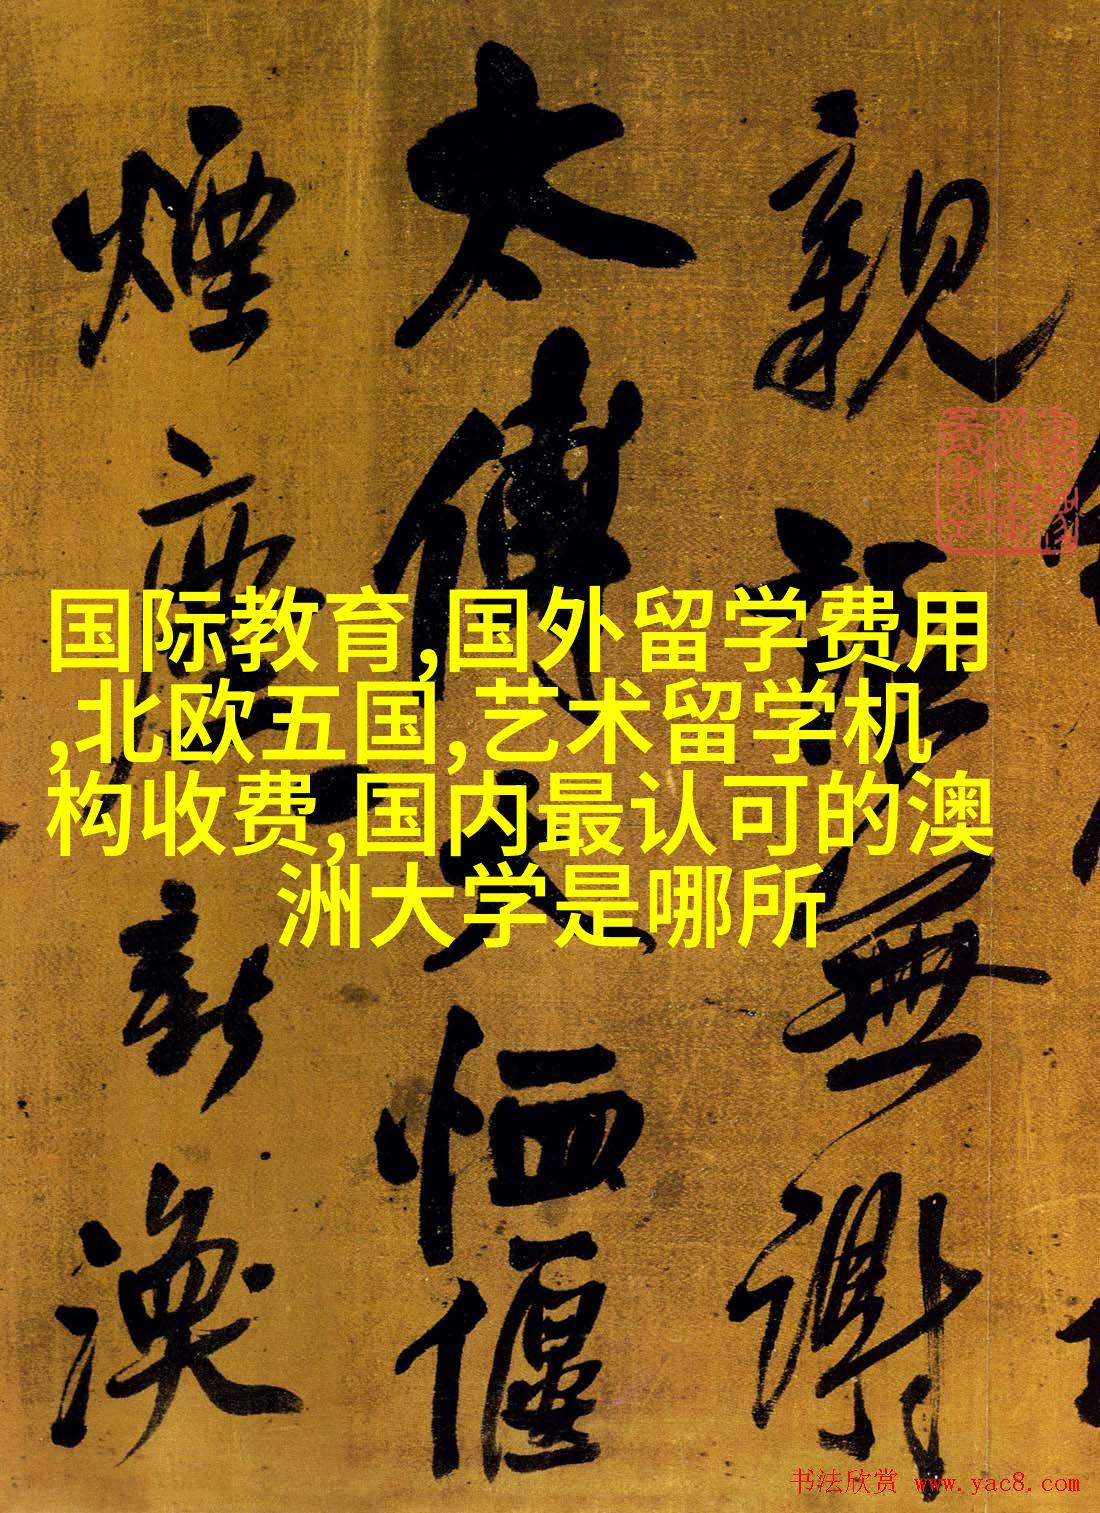 国际教育,国外留学费用
,北欧五国,艺术留学机
构收费,国内最认可的澳
洲大学是哪所
親
無謝
太傅
恤偃
煙塵新渙
书法欣赏 www.yac8.com